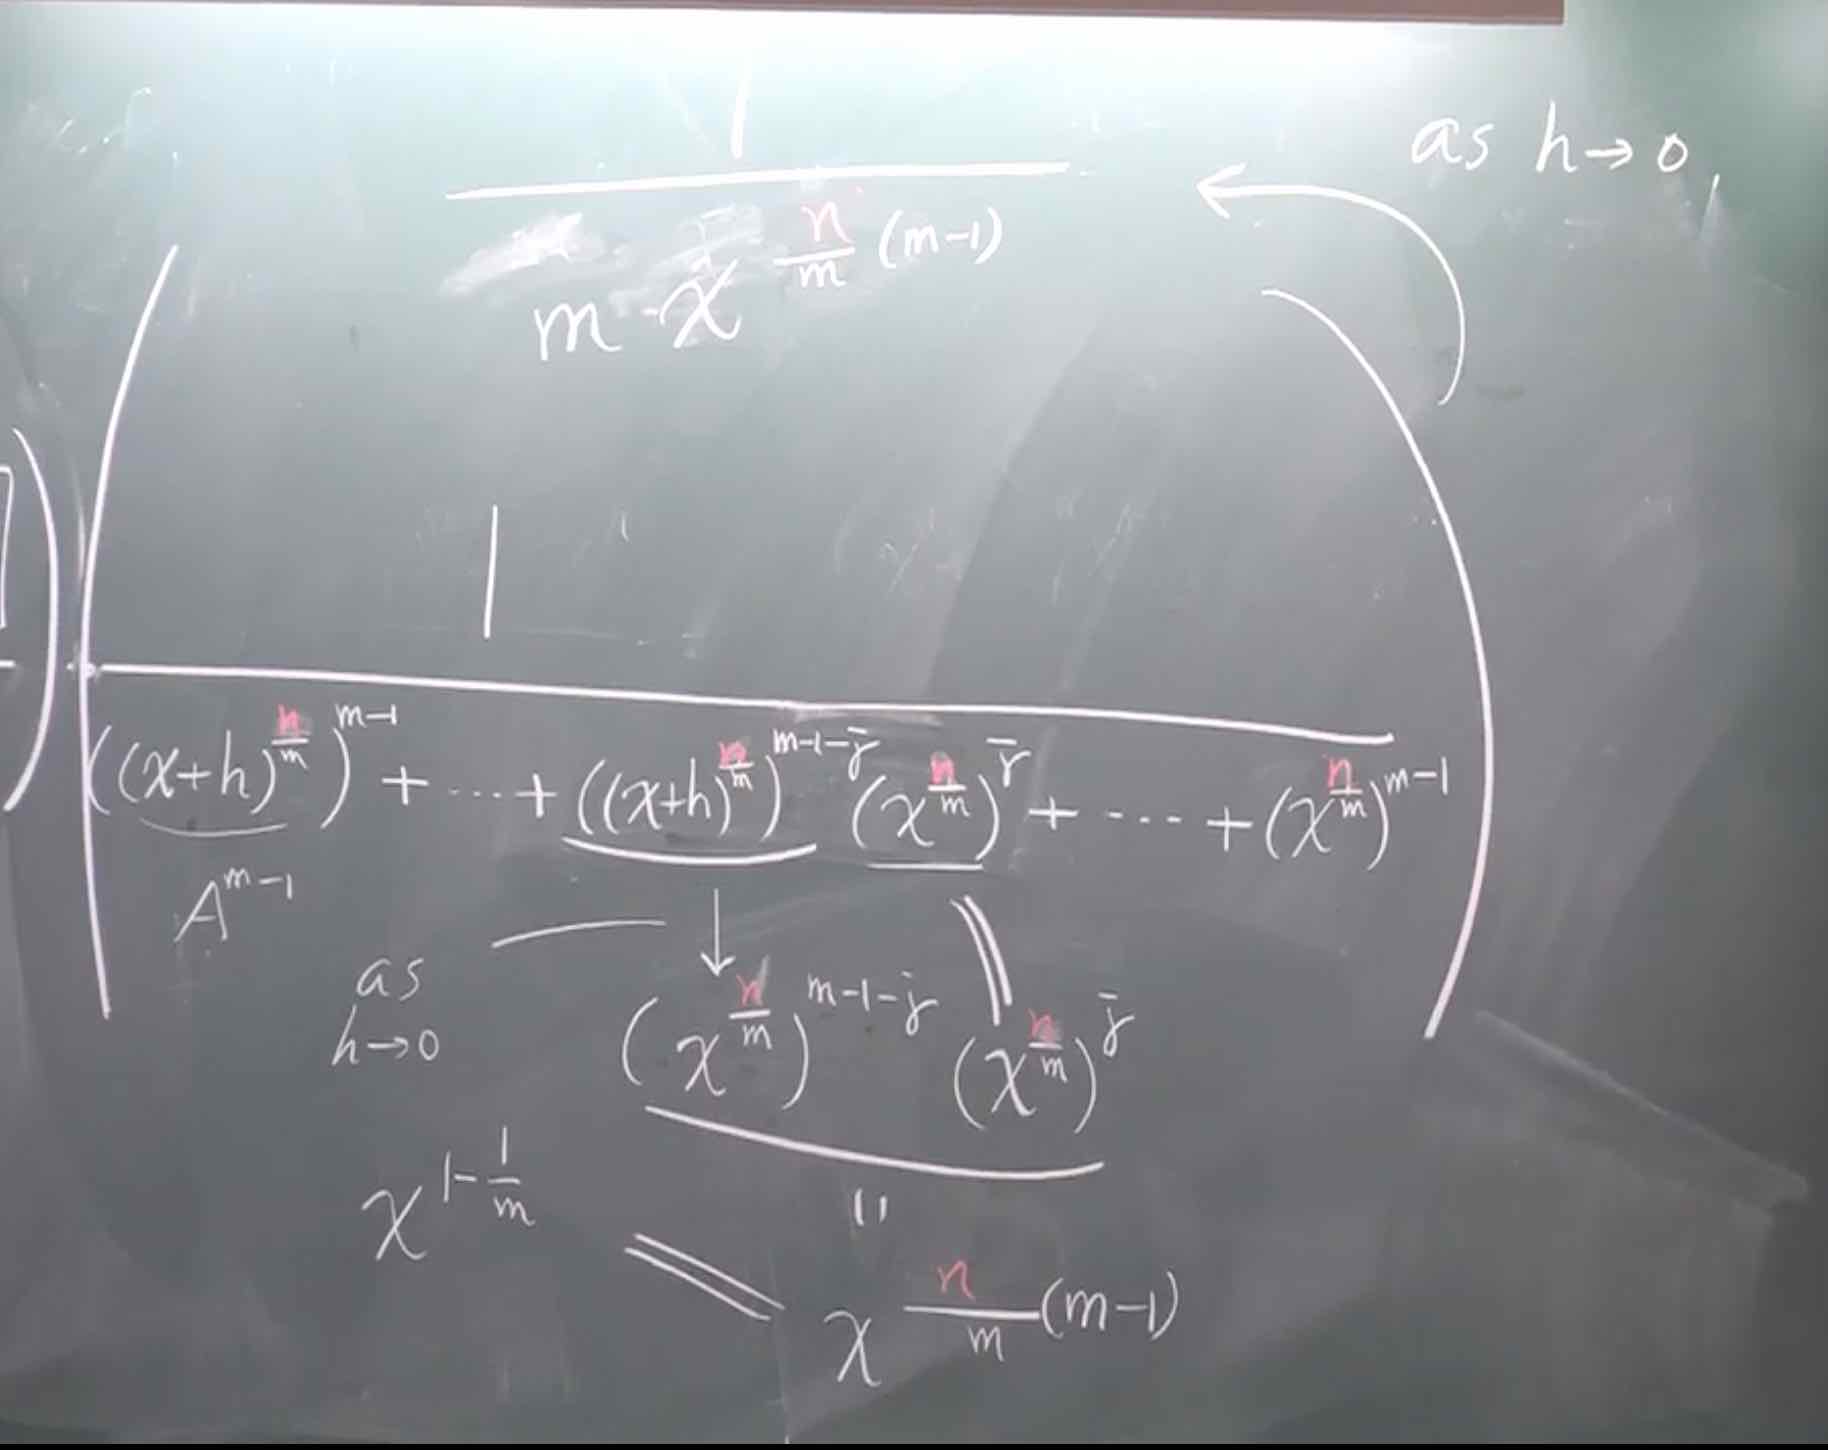 1
as h→0,
m·x^{\frac{n}{m}(m-1)}
1
((x+h)^{\frac{n}{m}})^{m-1} + ⋯ + ((x+h)^{\frac{n}{m}})^{m-1-j} (x^{\frac{n}{m}})^{j} + ⋯ + (x^{\frac{n}{m}})^{m-1}
A^{m-1}
as
h→0
↓
(x^{\frac{n}{m}})^{m-1-j} (x^{\frac{n}{m}})^{j}
x^{1-\frac{1}{m}}
=
x^{\frac{n}{m}(m-1)}